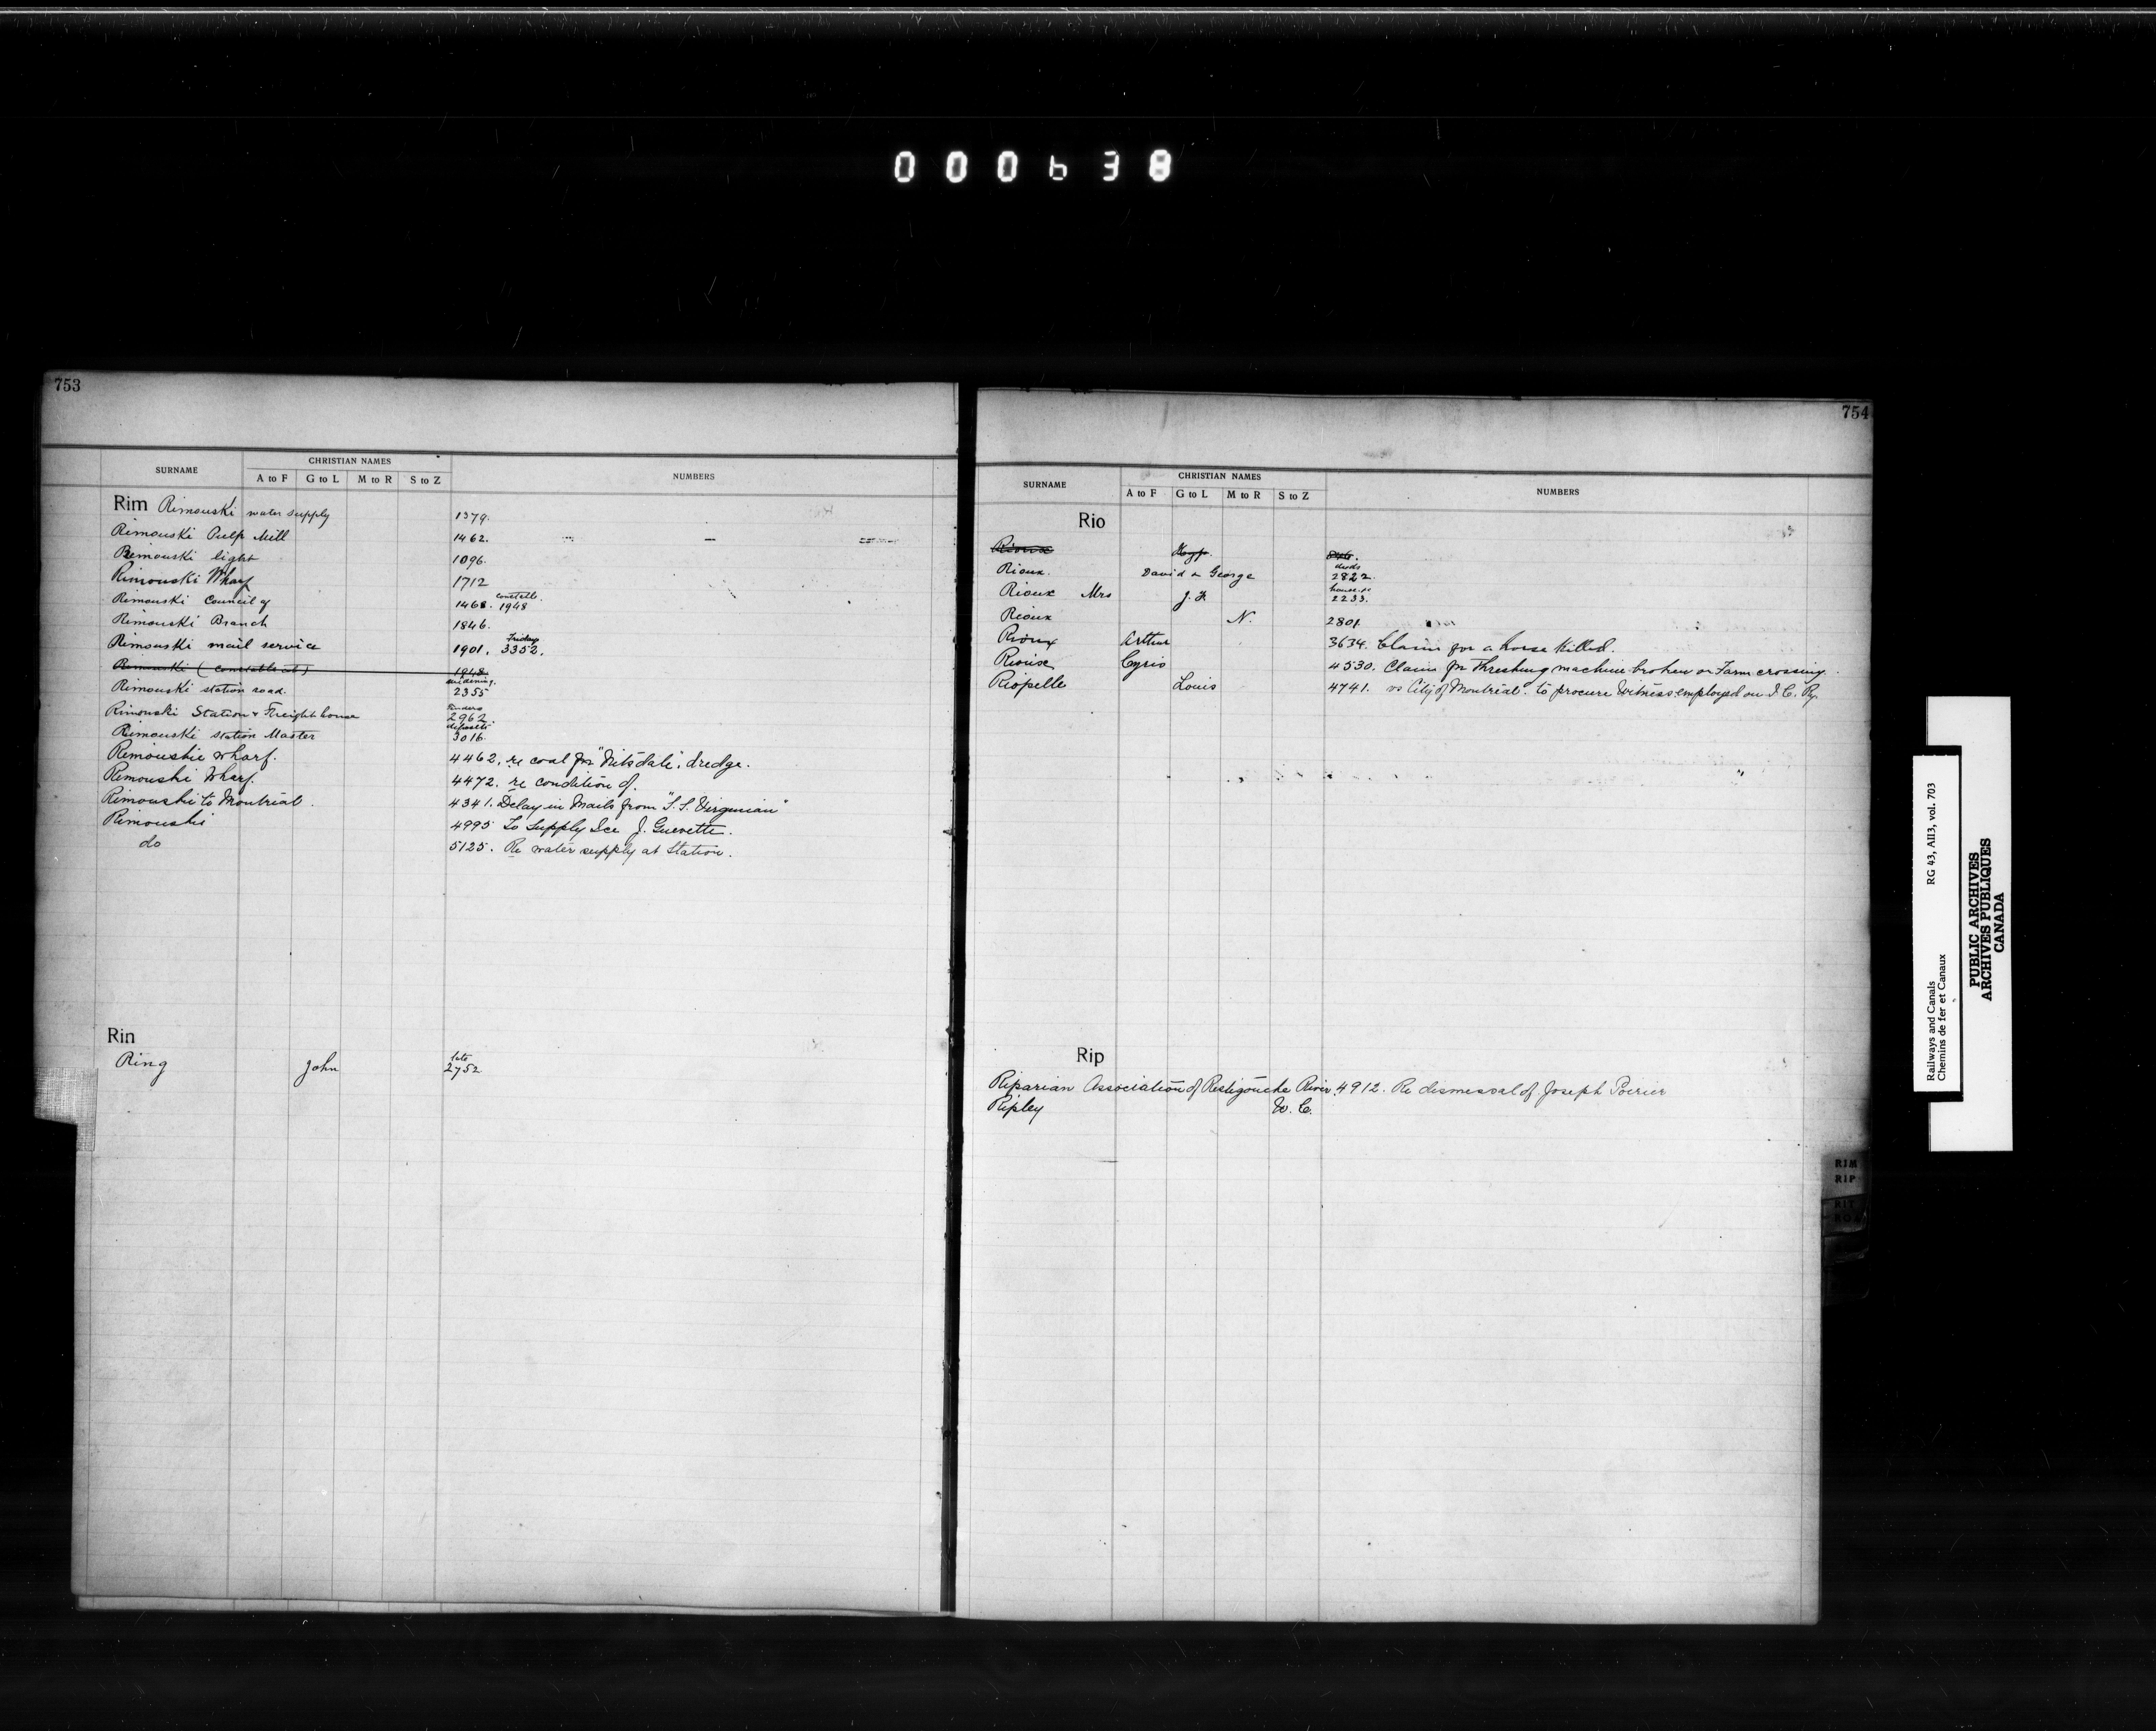 000638
753
SURNAME CHRISTIAN NAMES NUMBERS
A to F G to L M to R S to Z
Rim Rimouski water supply 1379.
Rimouski Pulp Mill 1462.
Rimouski light 1096.
Rimouski Wharf 1712
Rimouski Council of 1468. constable 1948
Rimouski Branch 1846.
Rimouski mail service 1901. Fridays 3352.
Rimouski (constable at) 1948.
Rimouski station road. widening. 2355
Rimouski Station & Freight house Tenders 2962.
Rimouski station Master deposits 3016.
Rimouskie wharf. 4462. re coal for "Nitsdale". dredge.
Rimouski Wharf. 4472. re condition of.
Rimouski to Montreal. 4341. Delay in Mails from "S.S. Virginian"
Rimouski 4995 To Supply Ice J. Guevette.
do 5125. Re water supply at Station.
Rin
Ring John 2752
754
SURNAME CHRISTIAN NAMES NUMBERS
A to F G to L M to R S to Z
Rio
Rioux
Rioux. David & George deeds 2822.
Rioux Mrs J. F. 2233.
Rioux N. 2801.
Rioux Arthur 3634. Claim for a horse killed.
Rioux Cyrio 4530. Claim for Threshing machine broken on Farm crossing.
Riopelle Louis 4741. vs City of Montreal. to procure Witness employed on I. C. Ry.
Rip
Riparian Association of Restigouche River. 4912. Re dismissal of Joseph Poirier
Ripley W. C.
RIM
RIP
RIT
Railways and Canals RG 43, AII3, vol. 703
Chemins de fer et Canaux
PUBLIC ARCHIVES
ARCHIVES PUBLIQUES
CANADA